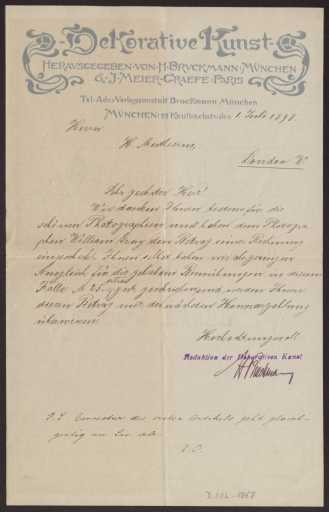 Dekorative Kunst
HERAUSGEGEBEN·VON·H·BRUCKMANN·MÜNCHEN
& J·MEIER-GRAEFE·PARIS
Tel-Adr: Verlagsanstalt Bruckmann München
MÜNCHEN: 19 Kaulbachstr. den 1. Juli 1898
Herrn
H. Muthesius,
London W
Sehr geehrter Herr!
Wir danken Ihnen bestens für die
schönen Photographien und haben dem Photogra-
phen William Gray den Betrag seiner Rechnung
Ihnen selbst haben wir als
für die gehabten Bemühungen in diesem
Falle M 25.- gutgeschrieben und werden Ihnen
diesen Betrag mit der nächsten Honorarzahlung
überweisen.
Hochachtungsvoll
Redaktion der Dekorativen Kunst
H Bruckmann
P.S. Correctur des ersten Artikels geht gleich-
zeitig an Sie ab.
D.O.